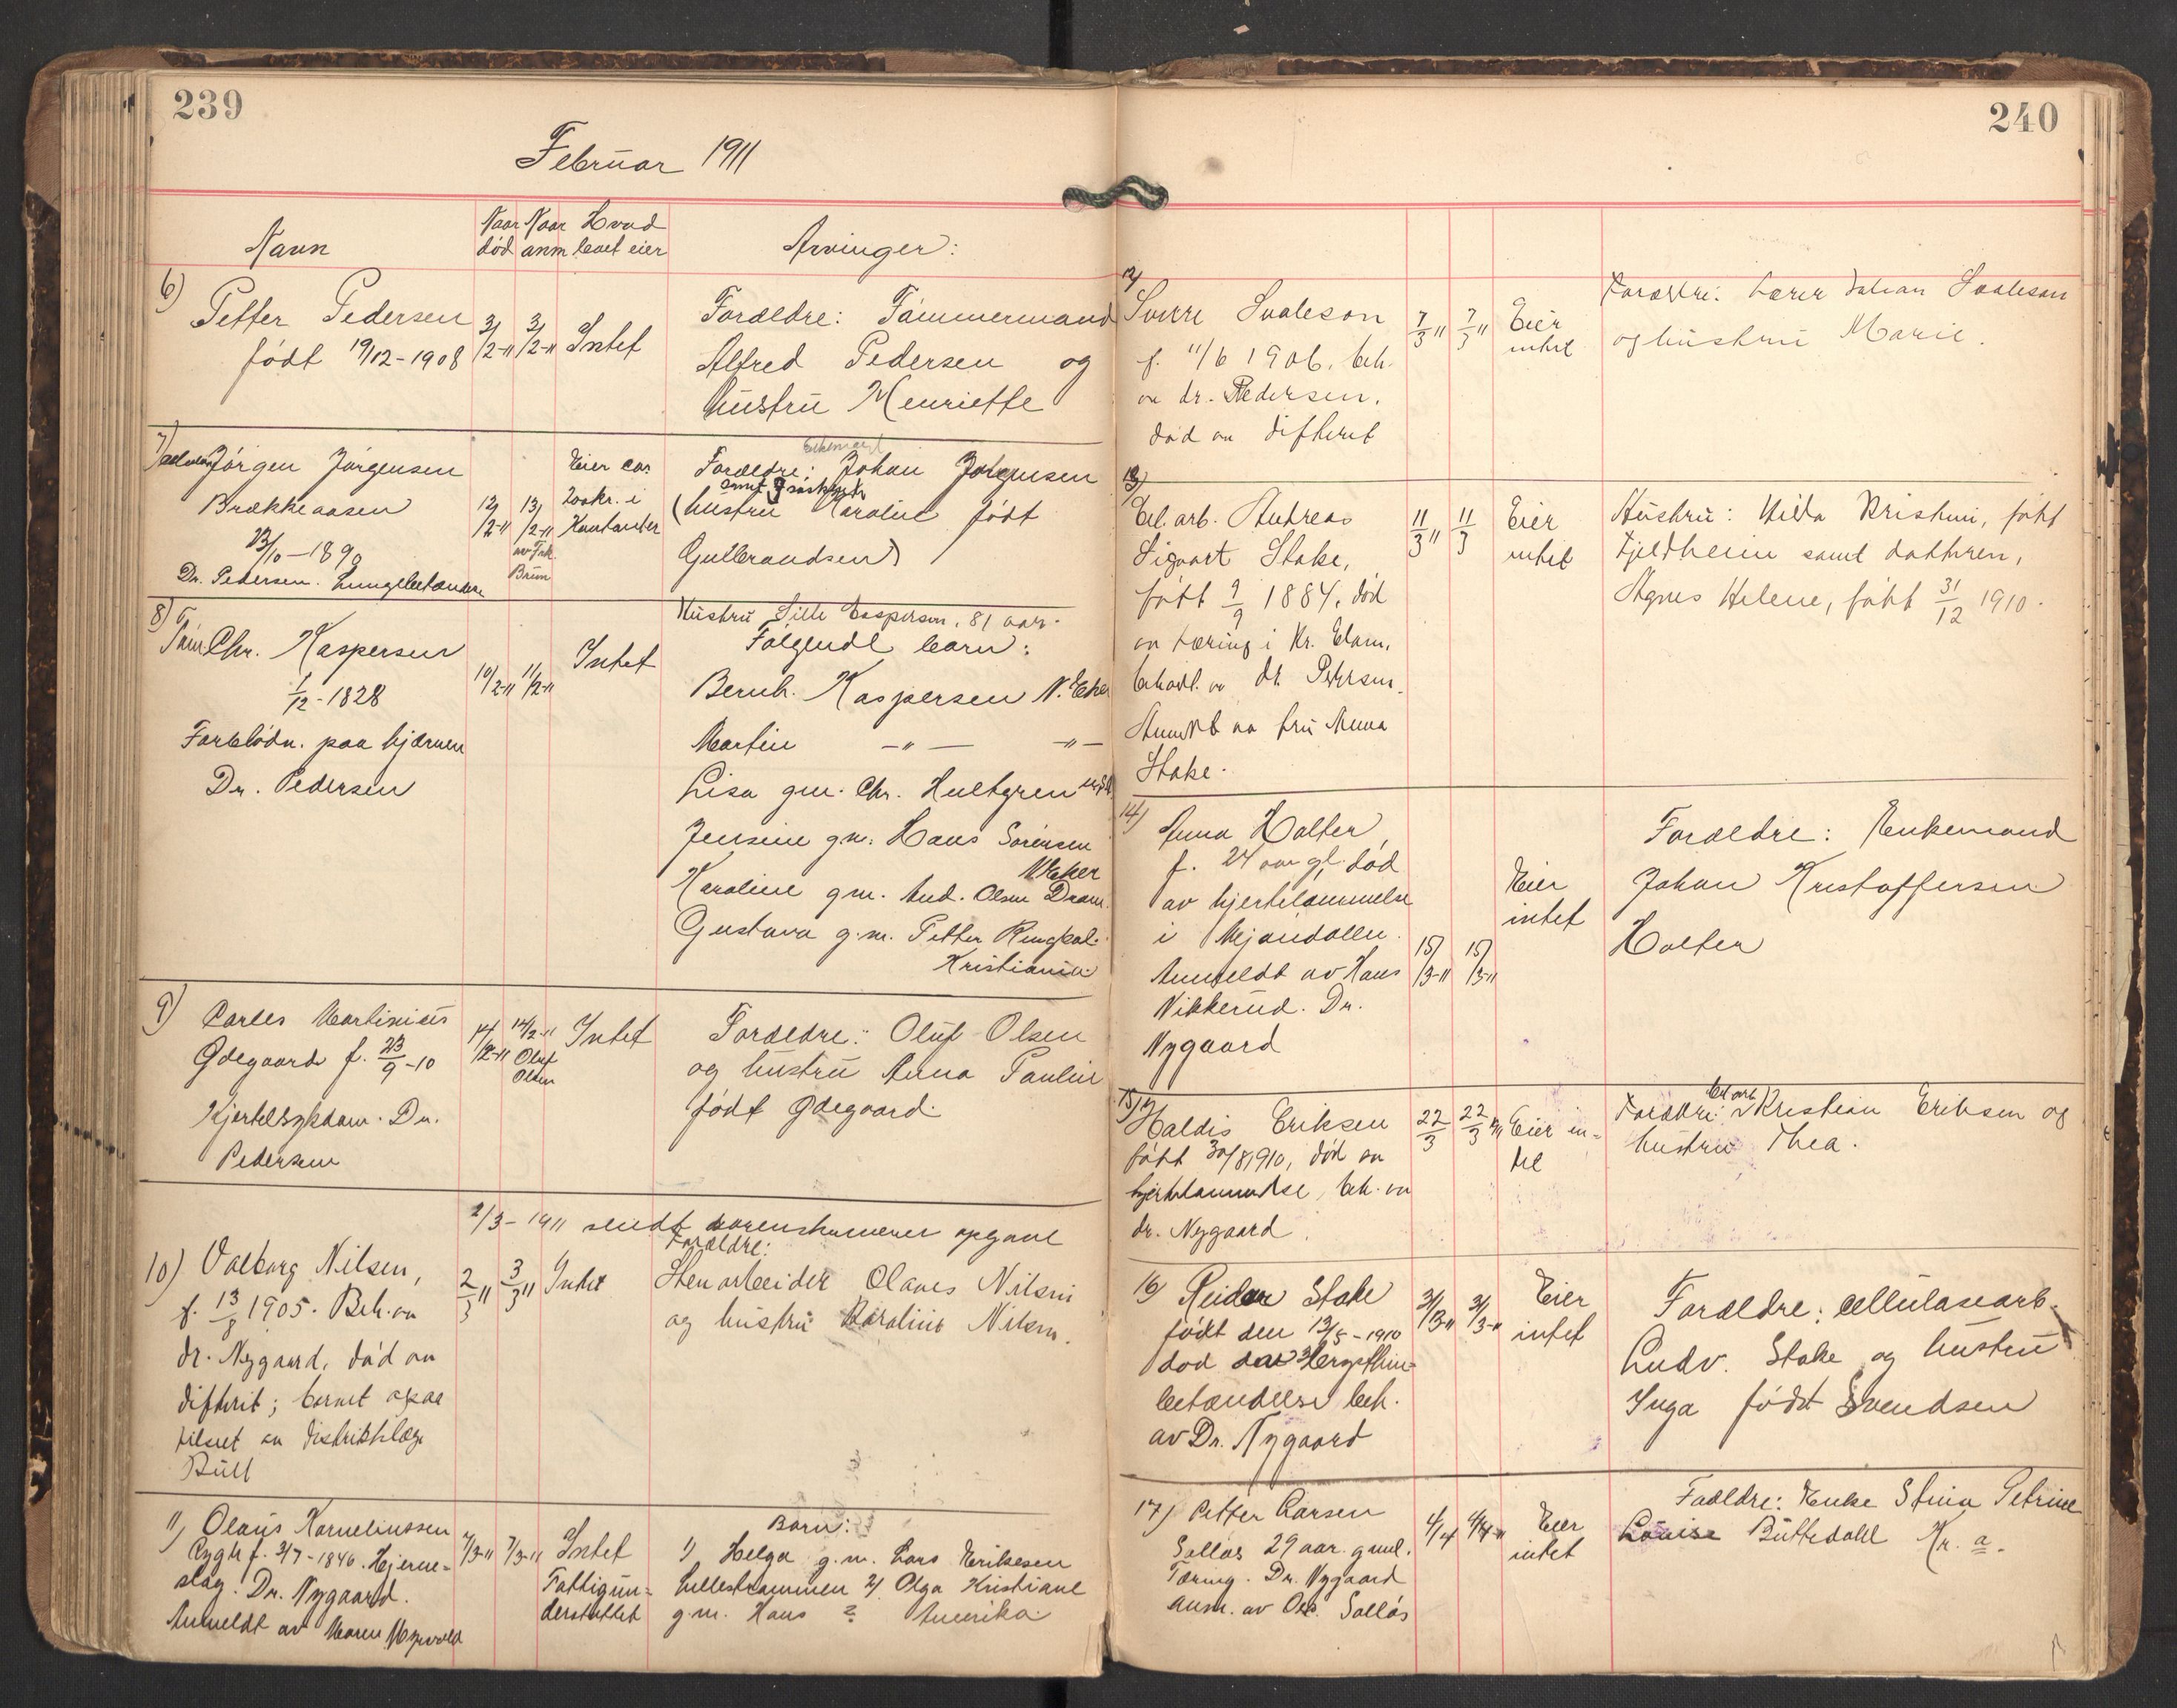 239
Februar 1911
Navn
Naar død
Naar anm
Hvad
boet eier
Arvinger:
6)
Petter Pedersen
født 19/12-1908
3/2-11
3/2-11
Intet
Forældre: Tømmermand
Alfred Pedersen og
hustru Henriette
7)
Jørgen Jørgensen
Brækkeaasen
23/10-1890
Dr. Pedersen. Lungebetændelse
12/2-11
13/2-11
av Frk.
Brun
Eier ca.
200 kr. i
Kontanter
Forældre: Johan Jørgensen
samt 7 søskende
(hustru Karoline født
Gulbrandsen)
8)
Chr. Kaspersen
1/12-1828
Forblødn. paa hjærnen
Dr. Pedersen
10/2-11
11/2-11
Intet
Hustru Sille Caspersen, 81 aar.
Følgende barn:
Bernh. Kaspersen N. Eker
Martin -"- -"-
Lisa gm. Chr. Hultgren
Jensine gm. Hans Sørensen
N Eker
Karoline gm. And. Olsen Dram.
Gustava g.m. Petter
Kristiania
9)
Carles Martinius
Ødegaard f. 23/9-10
Kjertelsykdom. Dr.
Pedersen
14/2-11
14/2-11
Oluf
Olsen
Intet
Forældre: Oluf Olsen
og hustru Anna Pauline
født Ødegaard.
2/3-1911 sendt sorenskriveren opgave
10) Valborg Nilsen,
f. 13/8 1905. Beh. av
dr. Nygaard, død av
difterit; barnet ogsaa
tilset av distriktslæge
Bull
2/3 11
3/3 11
Intet
Forældre:
Stenarbeider Olaves Nilsen
og hustru Karoline Nilsen.
11) Olaus Korneliussen
f. 3/7-1846. Hjerne-
slag. Dr. Nygaard.
Anmeldt av Maren
7/3-11
7/3-11
Intet
Fattigun-
derstøttet
Barn:
1) Helga g.m. Lars Eriksen
2) Olga Kristiane
g.m. Hans ? Amerika
240
12)
Sverre Svaleson
f. 11/6 1906. beh.
av dr. Pedersen.
død av difterit
7/3 11
7/3 11
Eier
intet
Forældre: Lærer Johan Svaleson
og hustru Marie.
13)
Cel. arb. Andreas
Sigvart Stake,
født 9/9 1884, død
av tæring i Kr. Elam.
behandl. av dr. Pedersen.
Anmeldt av fru Anna
Stake.
11/3 11
11/3
Eier
intet
Hustru: Hilda Kristine, født
Fjeldheim samt datteren,
Agnes Helene, født 31/12 1910.
14)
Anna Holter,
f. 24 aar gl. død
av hjertelammelse
i Mjøndalen.
Anmeldt av Hans
Nikkerud. Dr.
Nygaard
15/3-11
15/3-11
Eier
intet
Forældre: Enkemand
Johan Kristoffersen
Holter
15)
Haldis Eriksen
født 30/8 1910, død av
hjertelammelse, beh. av
dr. Nygaard.
22/3
22/3 11
Eier in-
tet
Forældre: Cel. arb. Kristian Eriksen og
hustru Thea.
16) Reidar Stake
født den 13/5-1910
død
betændelse beh.
av Dr. Nygaard
31/3-11
31/3-11
Eier
intet
Forældre: cellulosearb.
Ludv. Stake og hustru
Inga født Svendsen
17) Petter Larsen
Solløs 29 aar gml.
Tæring. Dr. Nygaard
anm. av Ole Solløs
4/4
4/4-11
Eier
intet
Forældre: Enke Stina Petrine
Louise Buttedahl Kr. a.